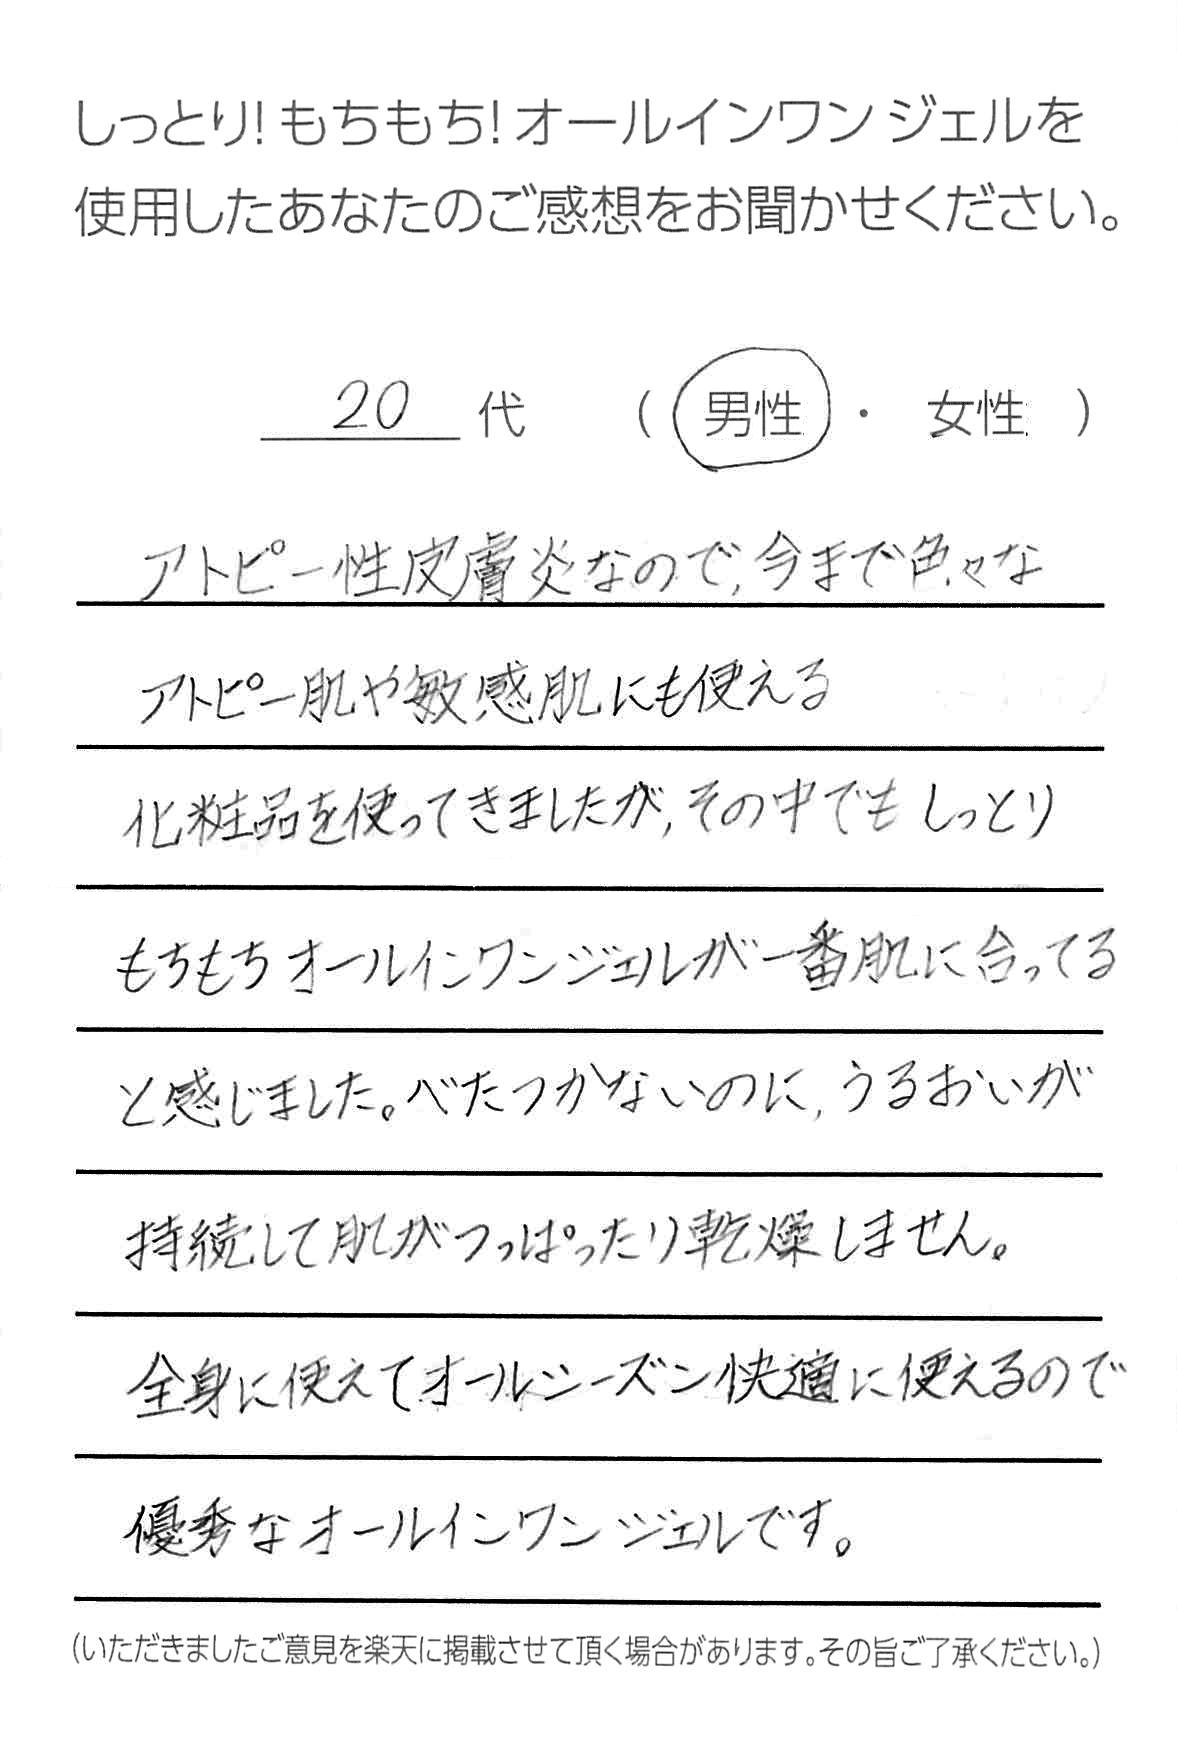 しっとり!もちもち!オールインワン ジェルを
使用したあなたのご感想をお聞かせください。
20 代 ( 男性 ・ 女性 )
アトピー性皮膚炎なので,今まで色々な
アトピー肌や敏感肌にも使える
化粧品を使ってきましたが,その中でもしっとり
もちもちオールインワンジェルが一番肌に合ってる
と感じました。べたつかないのに,うるおいが
持続して肌がつっぱったり乾燥しません。
全身に使えてオールシーズン快適に使えるので
優秀なオールインワンジェルです。
(いただきましたご意見を楽天に掲載させて頂く場合があります。その旨ご了承ください。)